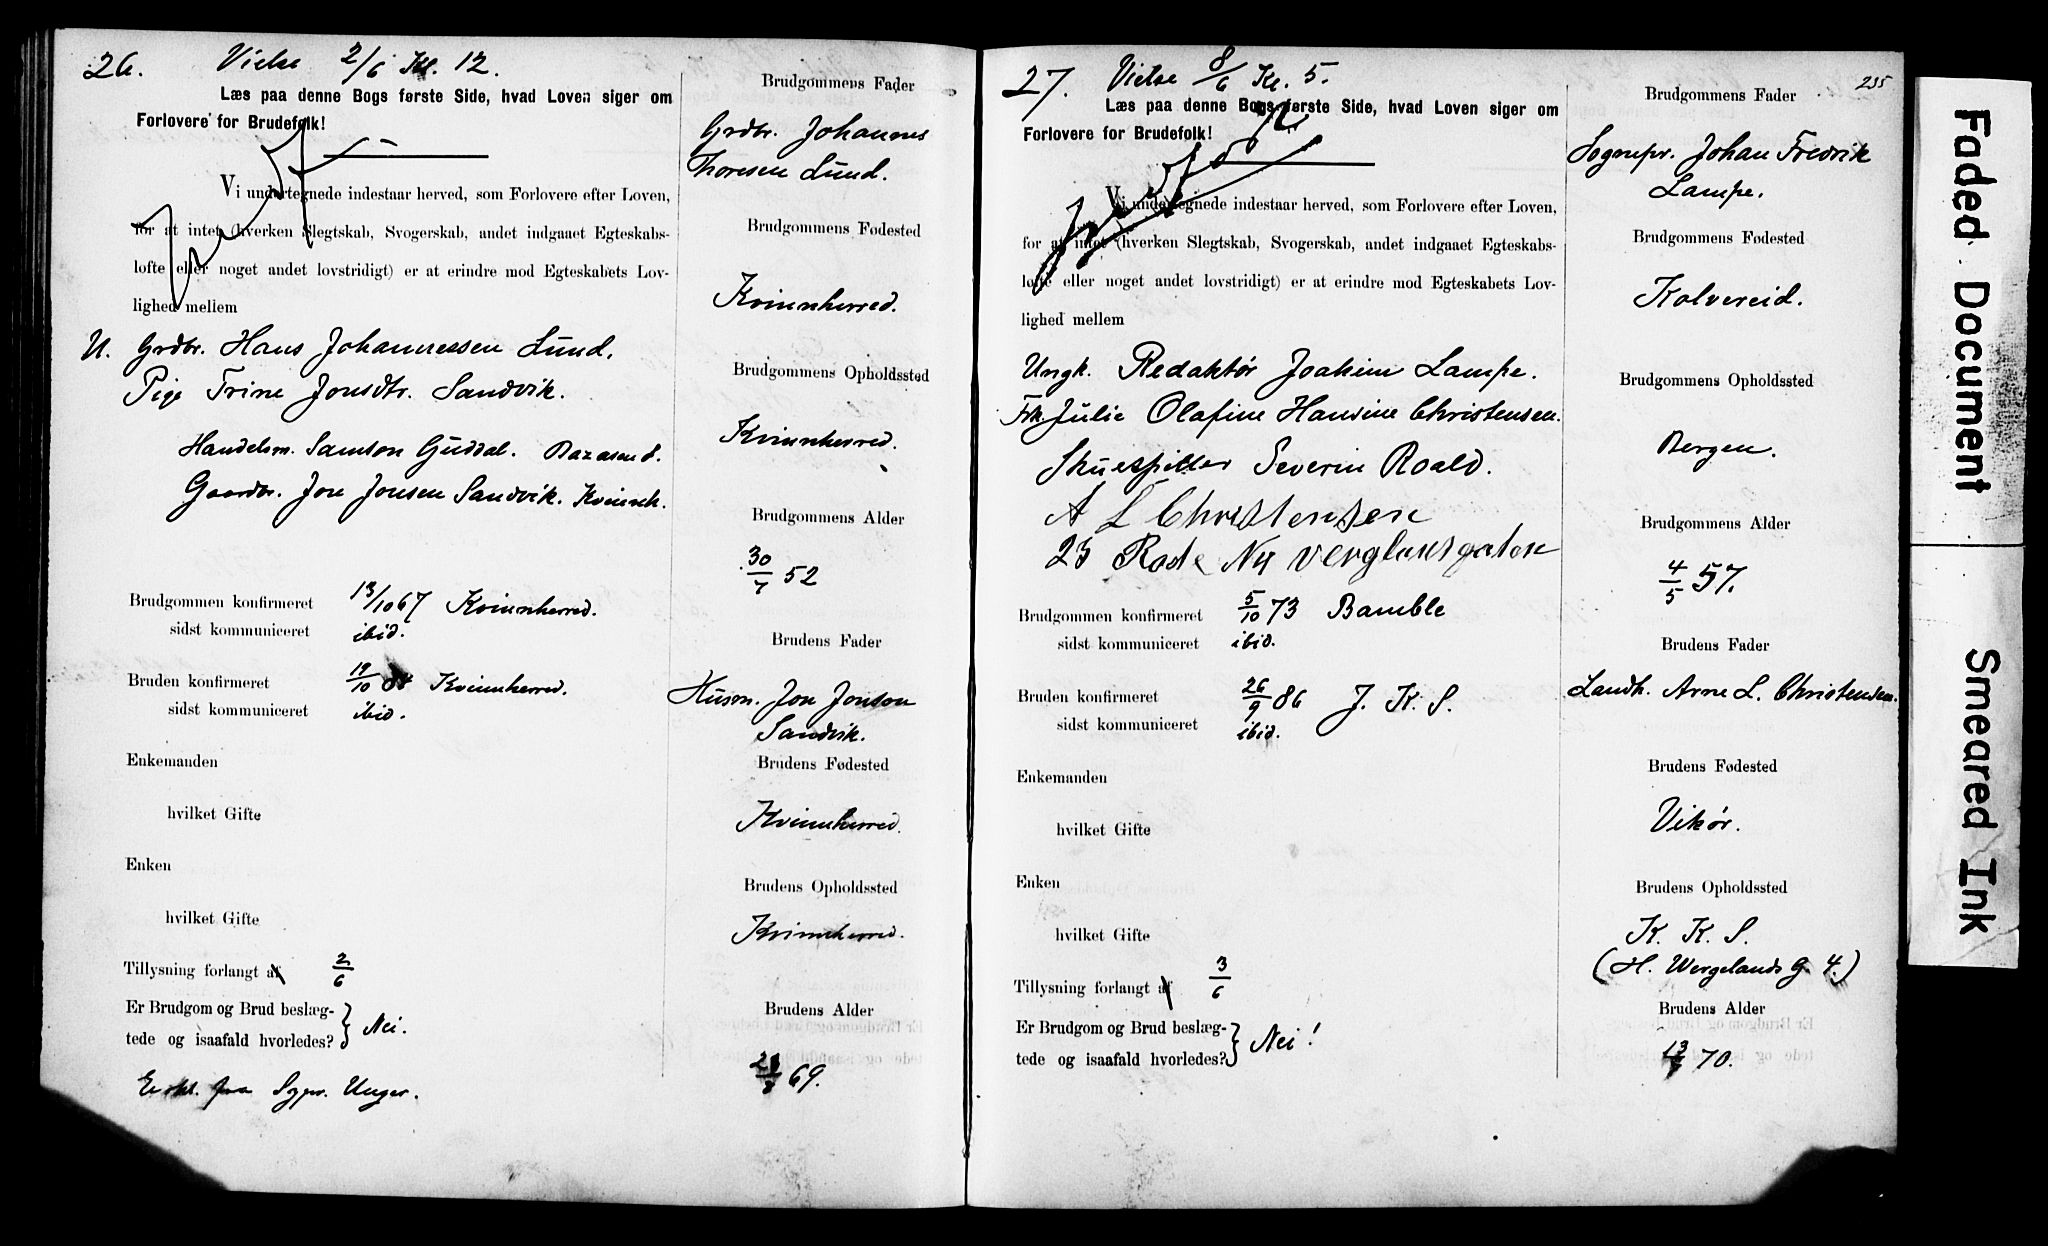 26. Vielse 2/6 Kl. 12.
Læs paa denne Bogs første Side, hvad Loven siger om
Forlovere for Brudefolk!
Vi undertegnede indestaar herved, som Forlovere efter Loven,
for at intet (hverken Slegtskab, Svogerskab, andet indgaaet Egteskabs-
løfte eller noget andet lovstridigt) er at erindre mod Egteskabets Lov-
lighed mellem
U. Grdbr. Hans Johannessen Lund.
Pige Trine Jonsdtr. Sandvik.
Handelsm. Samson Guddal. Rosend.
Gaardbr. Jon Jonsen Sandvik. Kvinnh.
Brudgommen konfirmeret 13/10 67 Kvinnherred.
sidst kommuniceret ibid.
Bruden konfirmeret 19/10 Kvinnherred.
sidst kommuniceret ibid.
Enkemanden
hvilket Gifte
Enken
hvilket Gifte
Tillysning forlangt af 2/6
Er Brudgom og Brud beslæg-
tede og isaafald hvorledes? } Nei.
fra Sgpr. Unger.
Brudgommens Fader
Grdbr. Johannes
Thoresen Lund.
Brudgommens Fødested
Kvinnherred.
Brudgommens Opholdssted
Kvinnherred.
Brudgommens Alder
30/7 52
Brudens Fader
Husm. Jon Jonson
Sandvik.
Brudens Fødested
Kvinnherred.
Brudens Opholdssted
Kvinnherred.
Brudens Alder
69.
235
27. Vielse 8/6 Kl. 5.
Læs paa denne Bogs første Side, hvad Loven siger om
Forlovere for Brudefolk!
Vi undertegnede indestaar herved, som Forlovere efter Loven,
for at intet (hverken Slegtskab, Svogerskab, andet indgaaet Egteskabs-
løfte eller noget andet lovstridigt) er at erindre mod Egteskabets Lov-
lighed mellem
Ungk. Redaktør Joakim Lampe.
Frk. Julie Olafine Hansine Christensen.
Skuespiller Severin Roald.
A L Christensen
23 Rode Ny
Brudgommen konfirmeret 5/10 73 Bamble
sidst kommuniceret ibid.
Bruden konfirmeret 26/9 86 J. K. S.
sidst kommuniceret ibid.
Enkemanden
hvilket Gifte
Enken
hvilket Gifte
Tillysning forlangt af 3/6
Er Brudgom og Brud beslæg-
tede og isaafald hvorledes? } Nei!
Brudgommens Fader
Sognepr. Johan Fredrik
Lampe.
Brudgommens Fødested
Kolvereid.
Brudgommens Opholdssted
Bergen.
Brudgommens Alder
4/5 57.
Brudens Fader
Landh. Arne L. Christensen.
Brudens Fødested
Vikør.
Brudens Opholdssted
K. K. S.
(H. Wergelands G. 4.)
Brudens Alder
70.
Faded Document
Smeared Ink